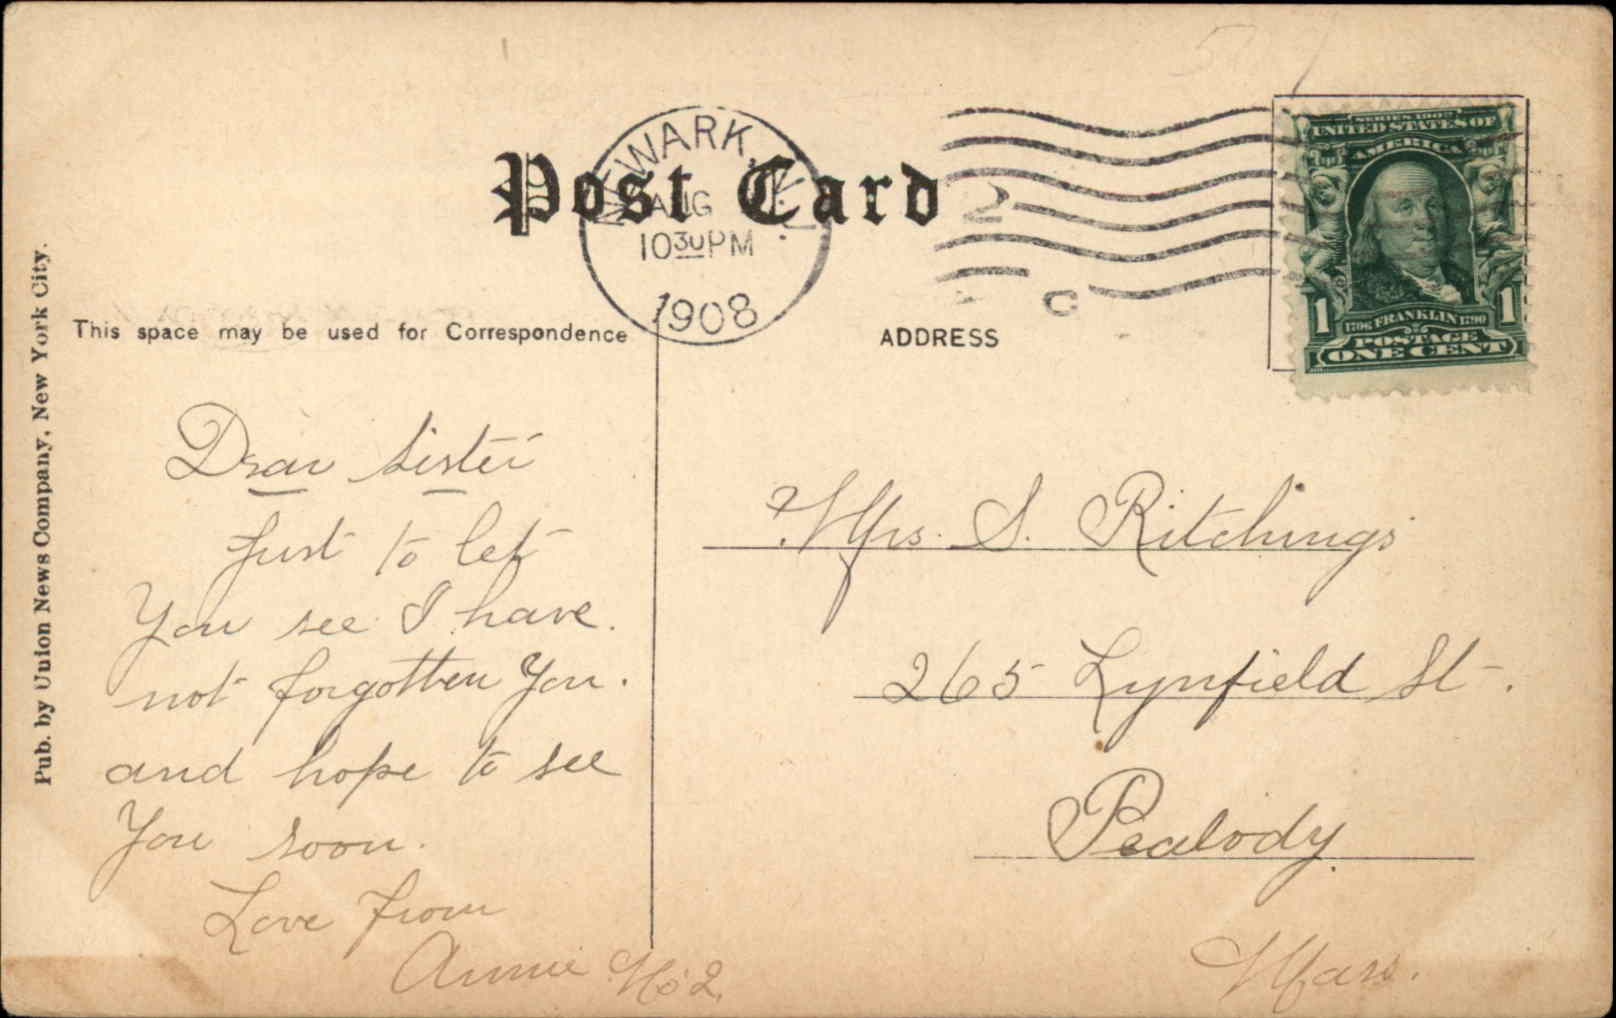 Post Card
NEWARK, N.J.
AUG
10 30 PM
1908
2
C
SERIES 1902
UNITED STATES OF
AMERICA
1 1
1706 FRANKLIN 1790
POSTAGE
ONE CENT
Pub. by Union News Company, New York City.
This space may be used for Correspondence
ADDRESS
Dear Sister
Just to let
You see I have.
not forgotten You.
and hope to see
You soon.
Love from
Annie No 2.
Mrs. S. Ritchings
265 Lynfield St.
Peabody
Mass.